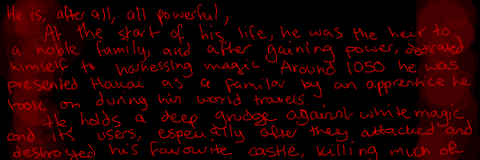 He is, after all, all powerful,
At the start of his life, he was the heir to
a noble family, and after gaining power, dedicated
himself to harnessing magic. Around 1050 he was
presented as a familar by an apprentice he
took on during his world travels.
He holds a deep grudge against white magic
and its users, especially after they attacked and
destroyed his favourite castle, killing much of